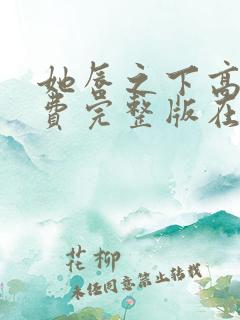 她唇之下高
费完整版在
花柳
未经同意禁止转载